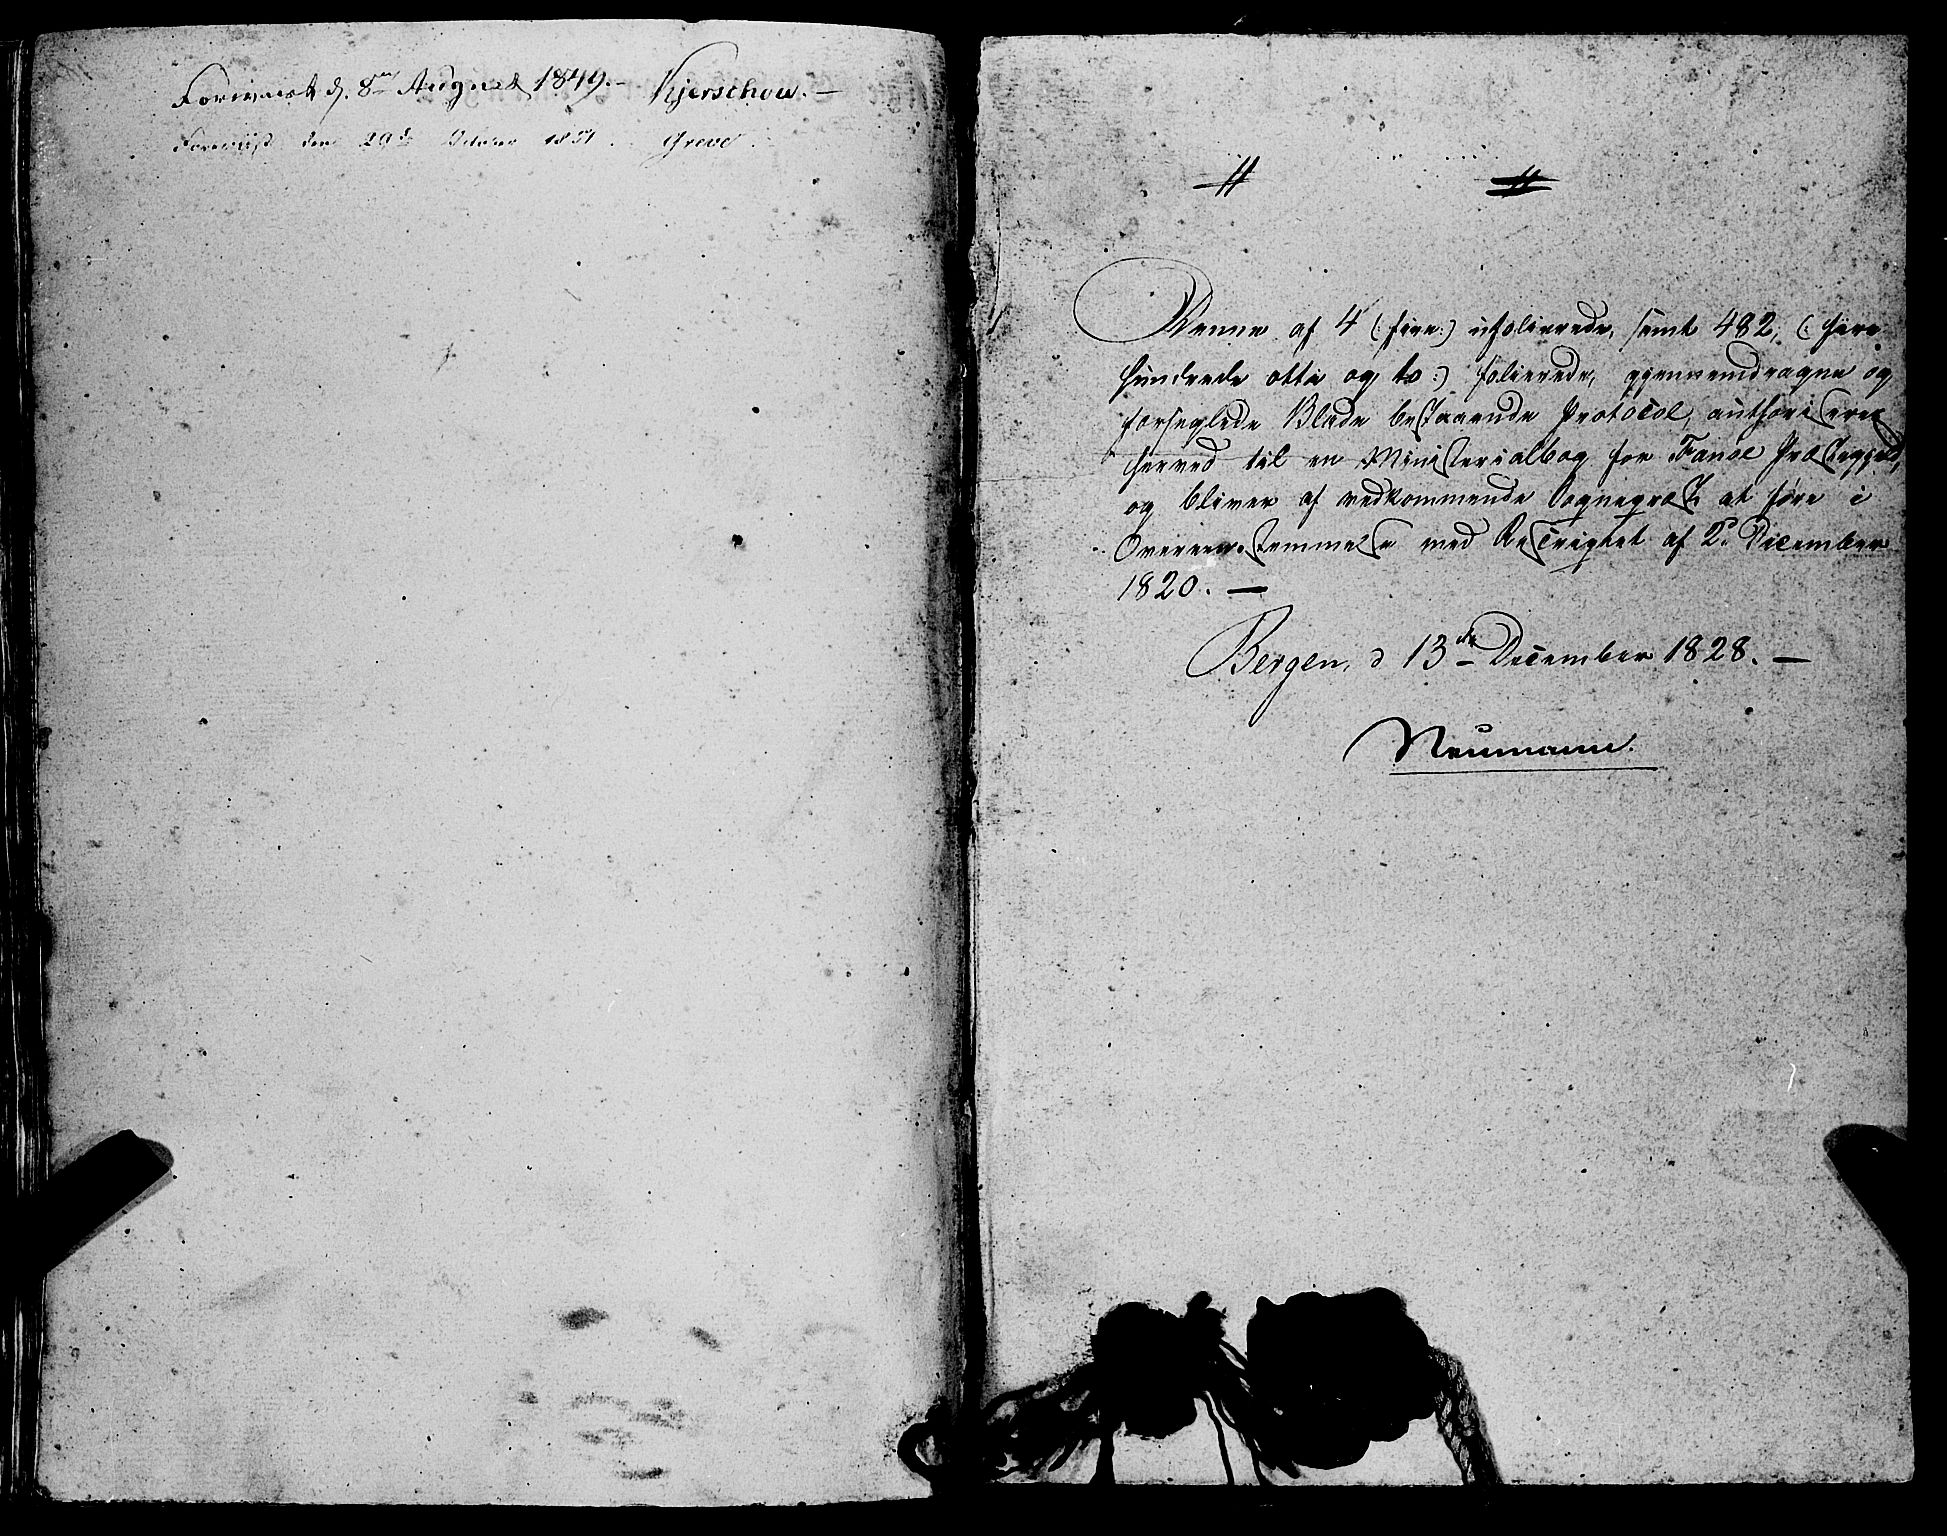 Foreviist d. 8de August 1849. - Kjerschow. -
Foreviist den 29de October 1851. Greve.
Denne af 4 (: fire :) ufolierede, samt 482, (: fire
hundrede otti og to :) folierede, gjennemdragne og
forseglede Blade bestaaende Protocol, authoriseres
herved til en Ministerialbog for Fanøe Præstegjeld,
og bliver af vedkommende Sognepræst at føre i
Overeensstemmelse med Rescriptet af 2d December
1820. —
Bergen, d 13de December 1828. —
Neumann.